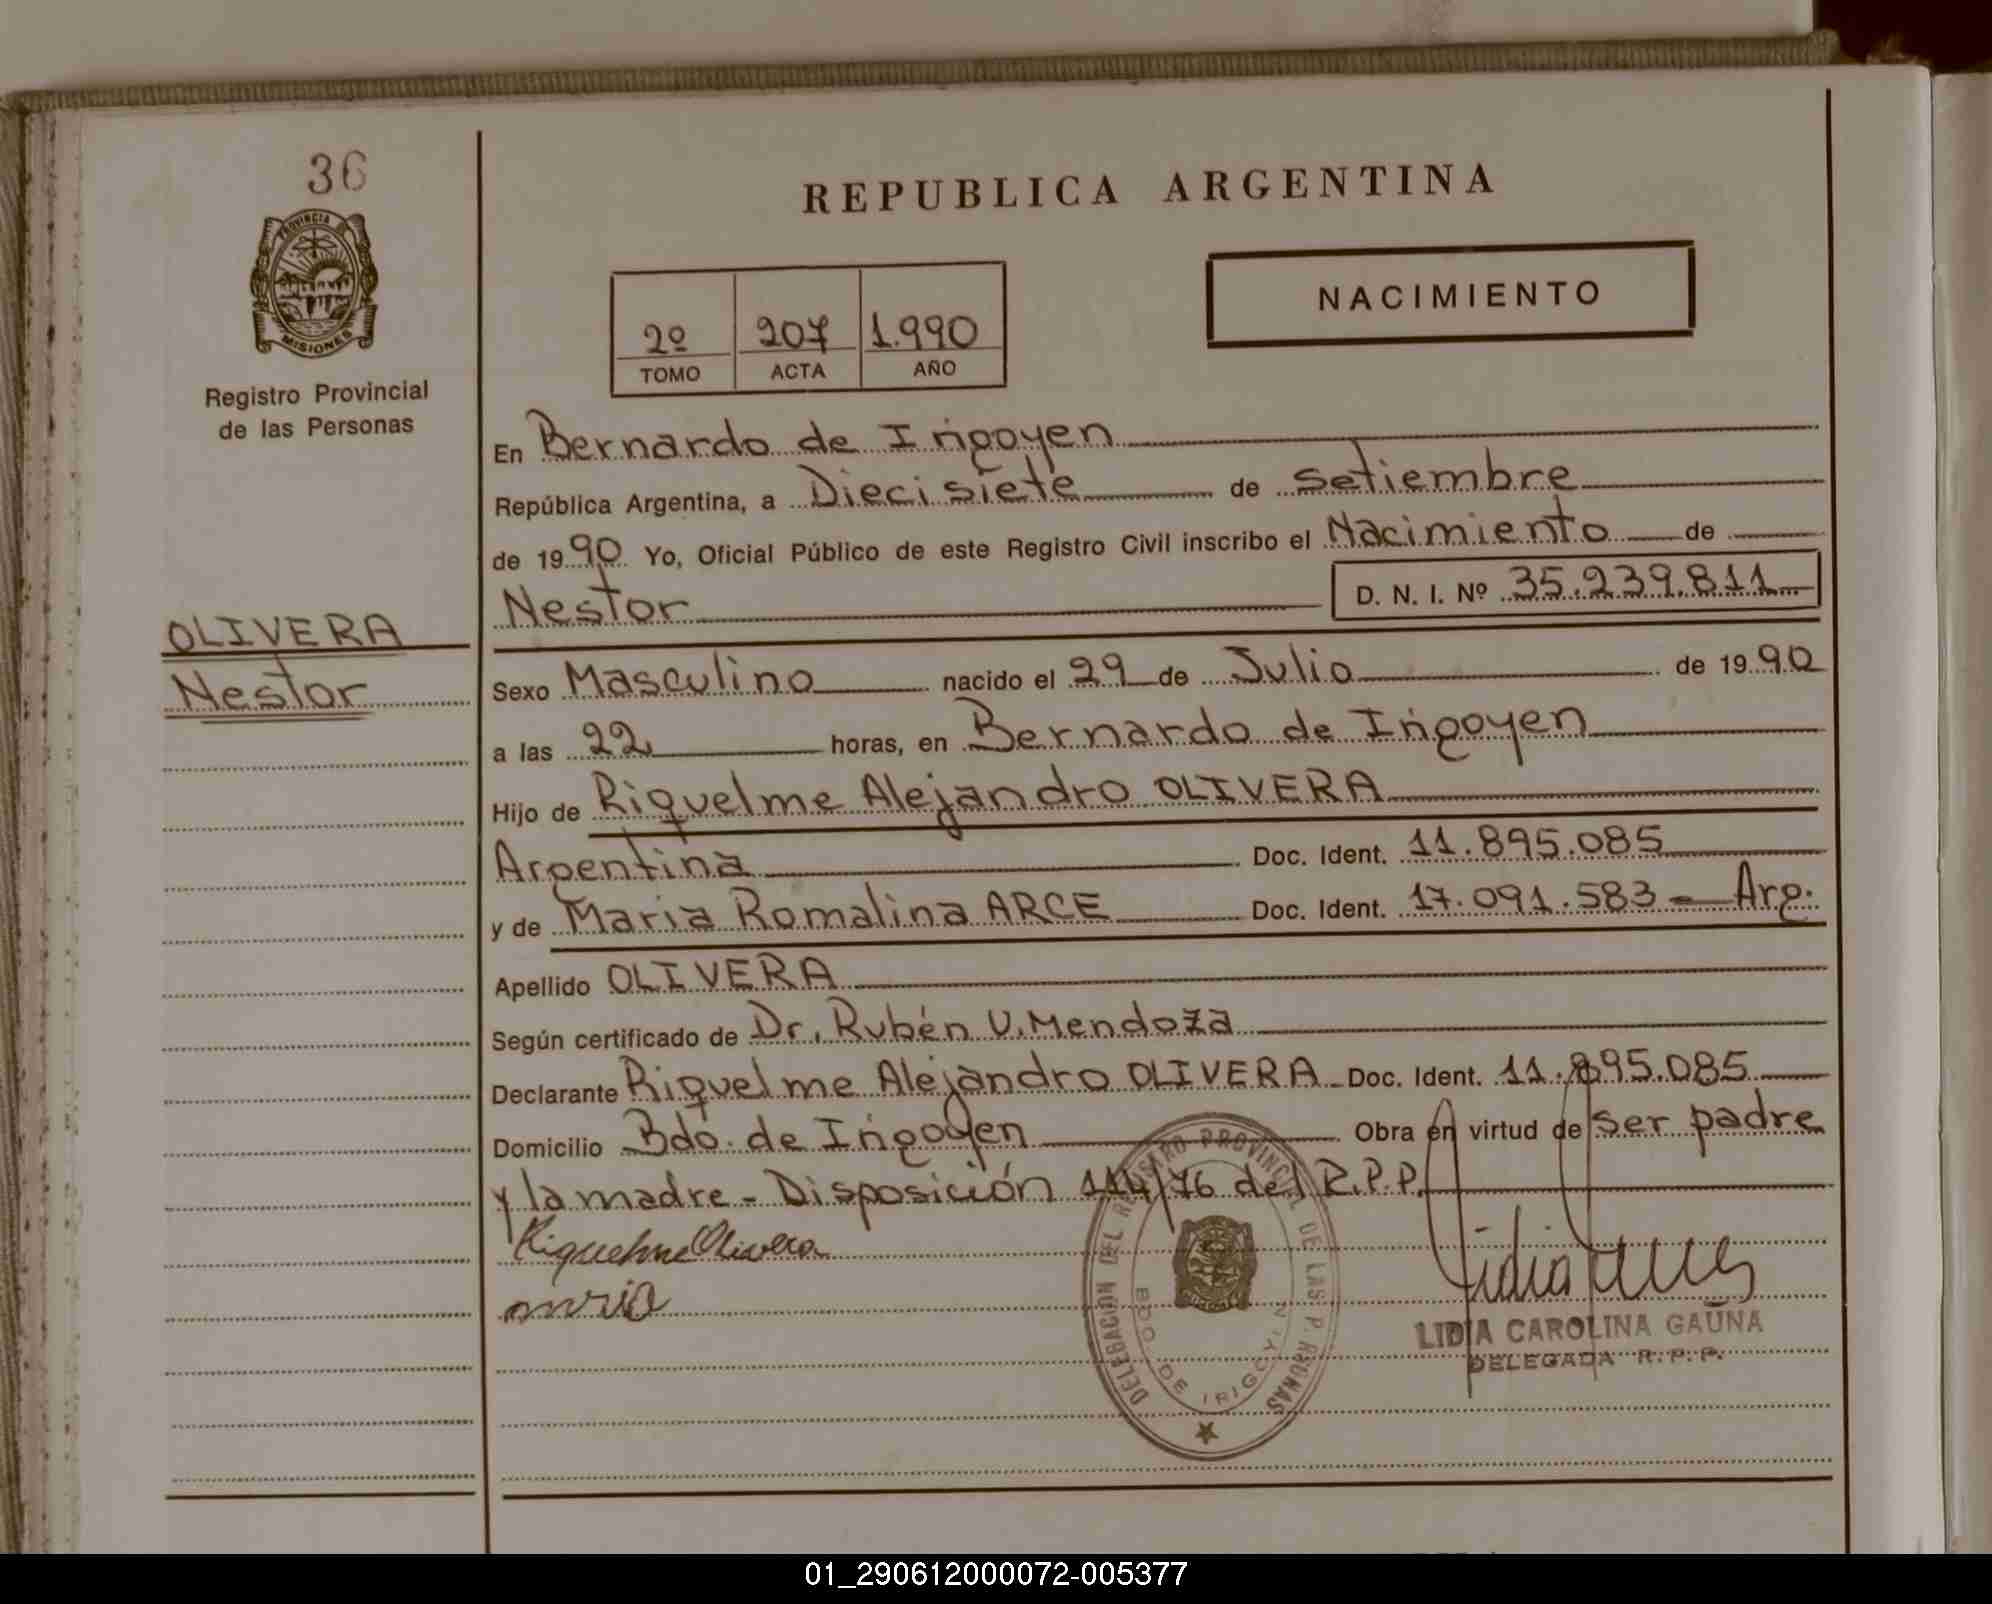 36
PROVINCIA DE
MISIONES
Registro Provincial
de las Personas
OLIVERA
Nestor
REPUBLICA ARGENTINA
2º 207 1.990
TOMO ACTA AÑO
NACIMIENTO
En Bernardo de Irigoyen
República Argentina, a Diecisiete de setiembre
de 1990 Yo, Oficial Público de este Registro Civil inscribo el Nacimiento de
Nestor D. N. I. Nº 35.239.811
Sexo Masculino nacido el 29 de Julio de 1990
a las 22 horas, en Bernardo de Irigoyen
Hijo de Riquelme Alejandro OLIVERA
Argentina Doc. Ident. 11.895.085
y de Maria Romalina ARCE Doc. Ident. 17.091.583 - Arg.
Apellido OLIVERA
Según certificado de Dr. Rubén U. Mendoza
Declarante Riquelme Alejandro OLIVERA - Doc. Ident. 11.895.085
Domicilio Bdo. de Irigoyen Obra en virtud de ser padre
y la madre - Disposición 114/76 del R.P.P.
Riquelme Olivera
DELEGACION DEL REGISTRO PROVINCIAL DE LAS PERSONAS
BDO DE IRIGOYEN
LIDIA CAROLINA GAUNA
DELEGADA R. P. P.
01_290612000072-005377